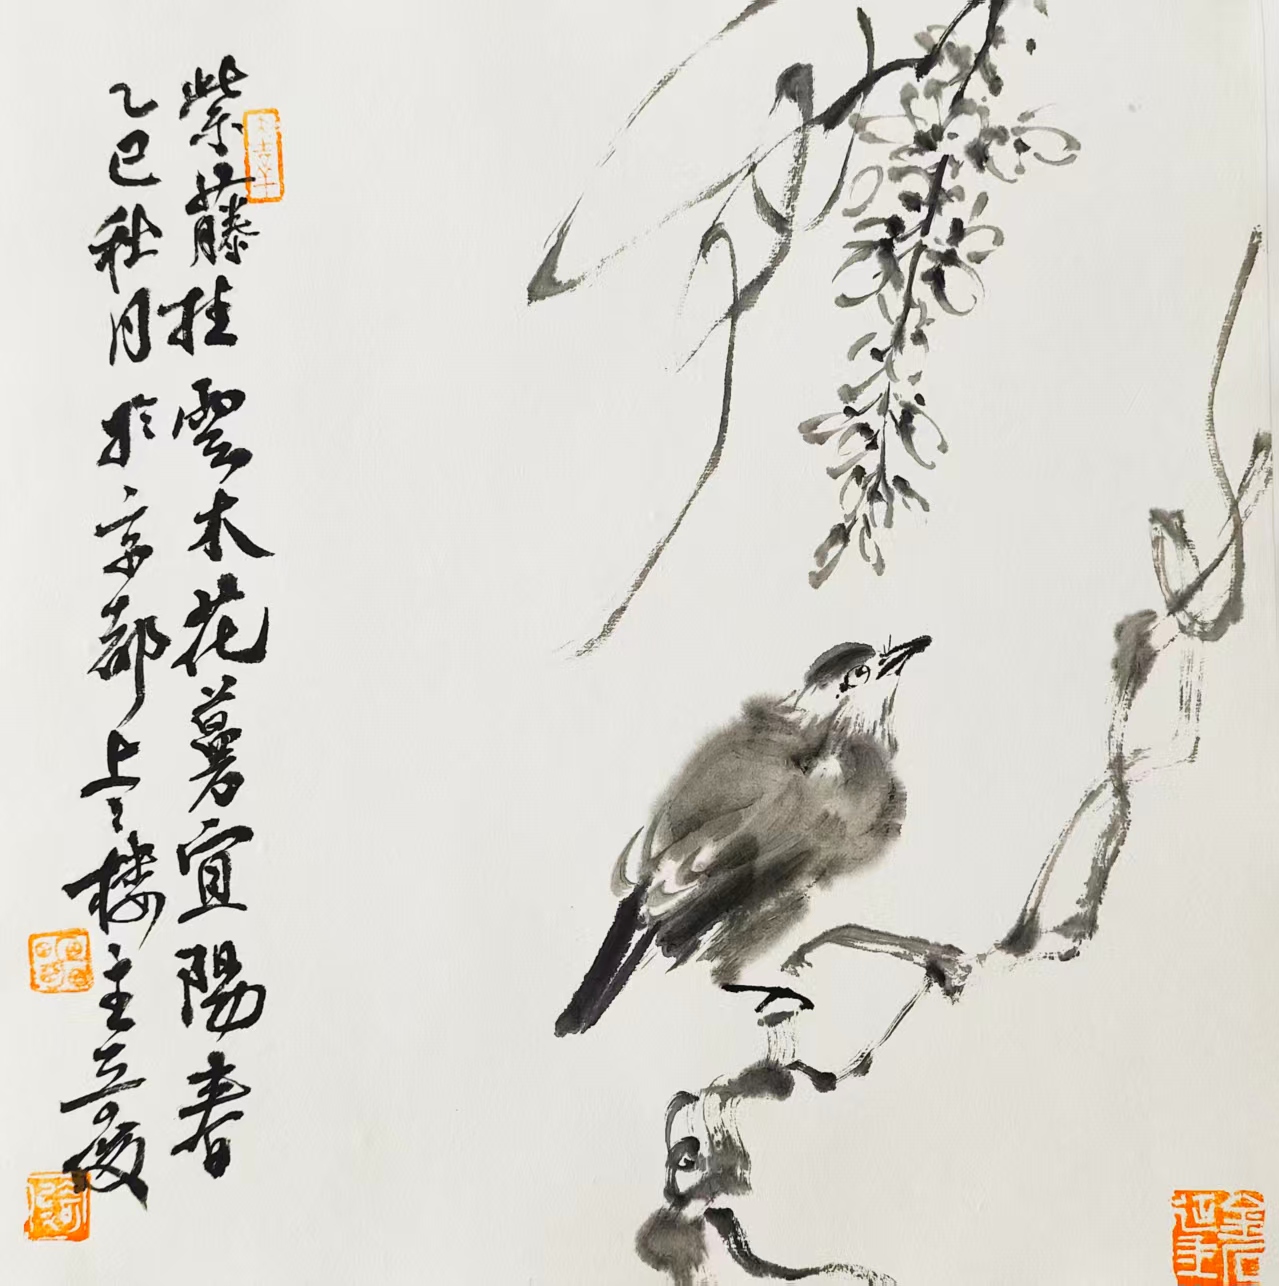 紫藤挂雲木花蔓宜陽春
乙巳秋月於京都上上楼主立俊